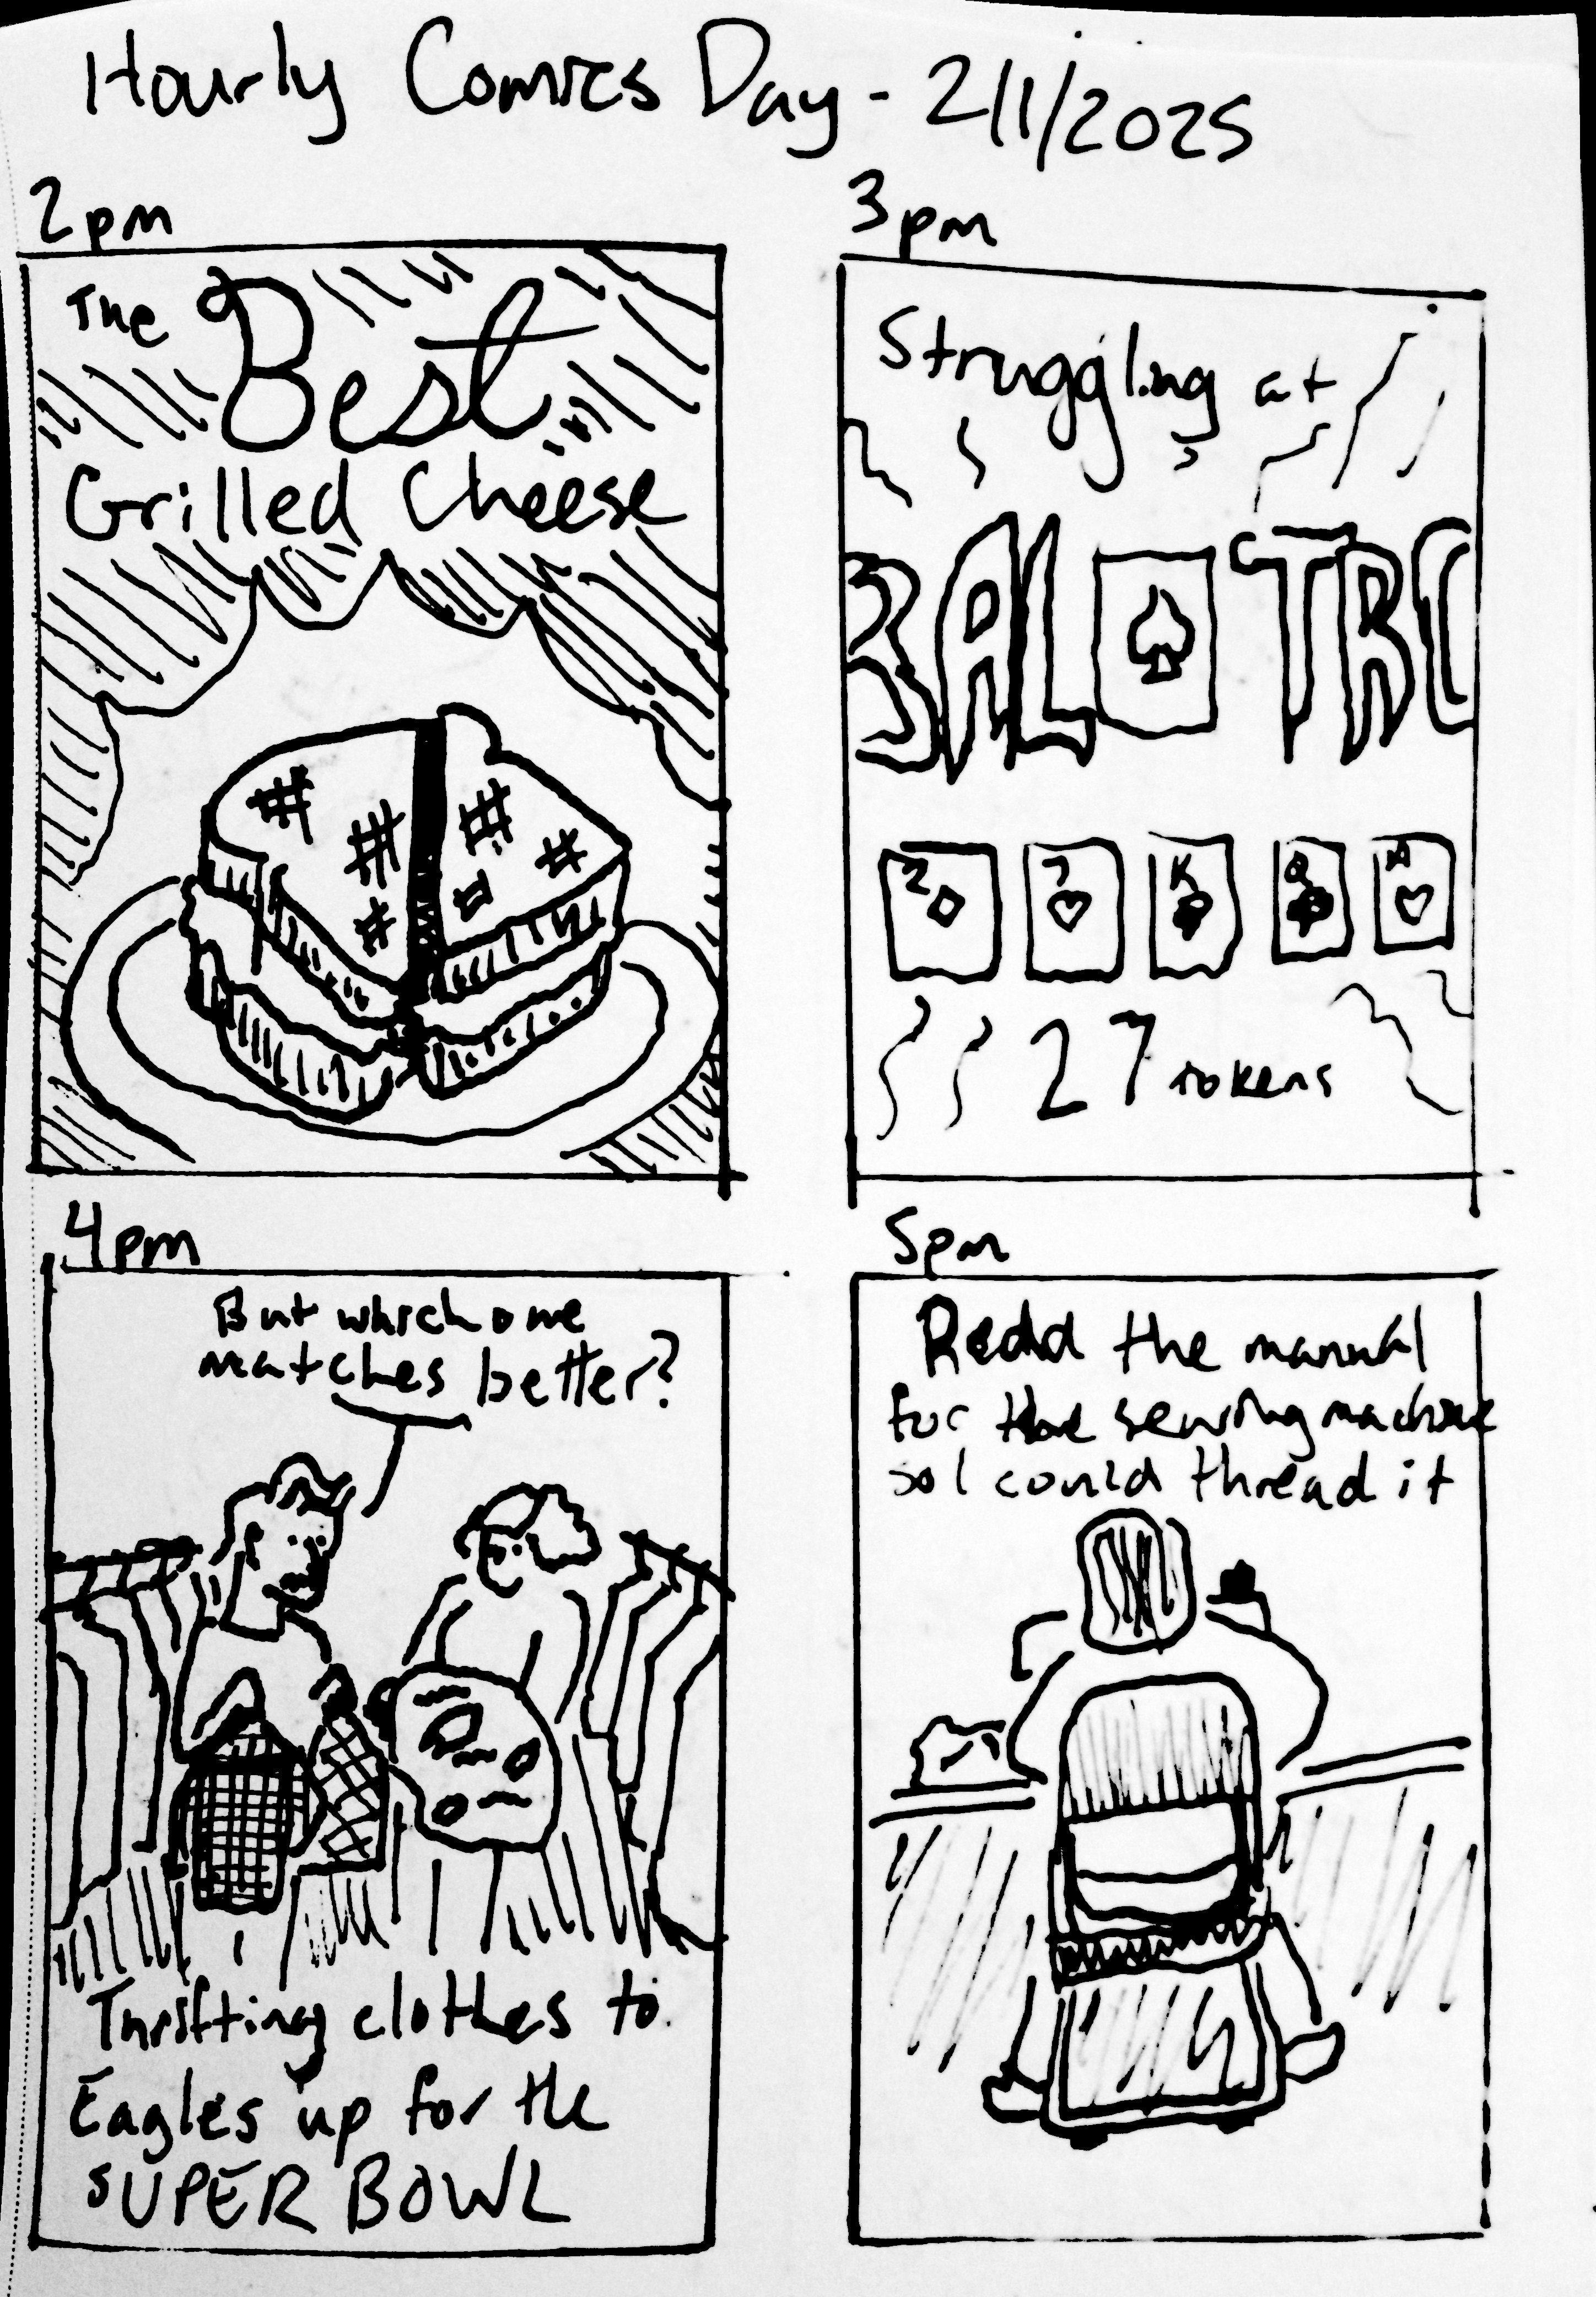 Hourly Comics Day - 2/1/2025
2pm
The Best
Grilled Cheese
3pm
Struggling at
BALATRO
2 7 K Q A
27 tokens
4pm
But which one
matches better?
Thrifting clothes to
Eagles up for the
SUPER BOWL
5pm
Read the manual
for the sewing machine
so I could thread it